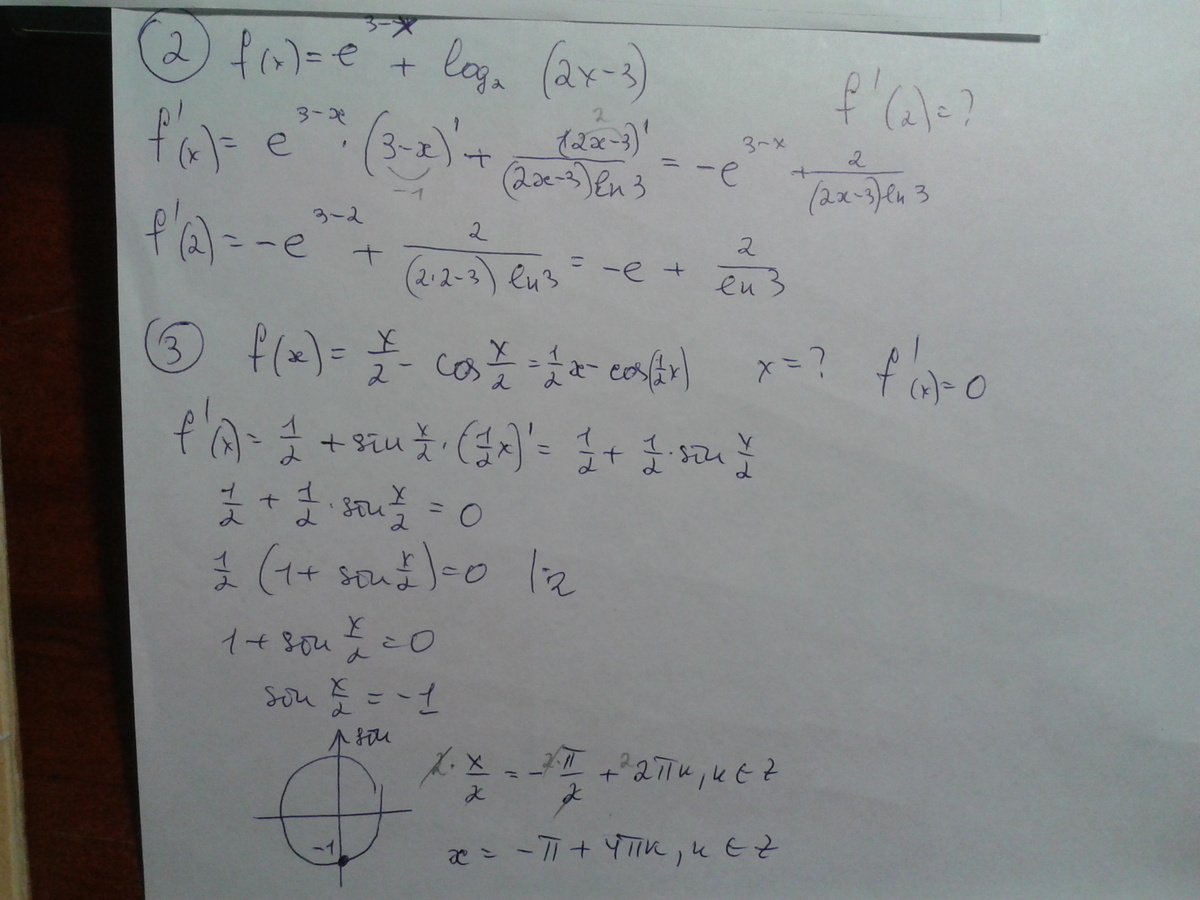 ② f(x) = e^(3-x) + log₂ (2x-3)    f'(2) = ?
f'(x) = e^(3-x) · (3-x)' + (2x-3)'/((2x-3) ln 3) = -e^(3-x) + 2/((2x-3) ln 3)
-1    2
f'(2) = -e^(3-2) + 2/((2·2-3) ln 3) = -e + 2/(ln 3)
③ f(x) = x/2 - cos x/2 = 1/2 x - cos(1/2 x)    x = ?    f'(x) = 0
f'(x) = 1/2 + sin x/2 · (1/2 x)' = 1/2 + 1/2 · sin x/2
1/2 + 1/2 · sin x/2 = 0
1/2 (1 + sin x/2) = 0 |·2
1 + sin x/2 = 0
sin x/2 = -1
sin
-1
2· x/2 = - 2·π/2 + 2·2πk, k ∈ Z
x = -π + 4πk, k ∈ Z